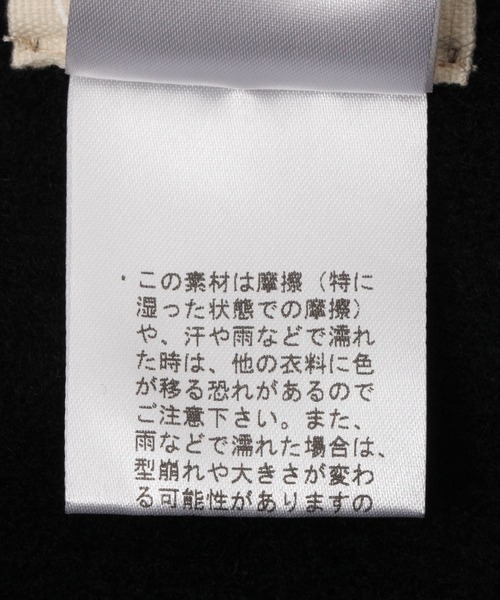 ・この素材は摩擦（特に
湿った状態での摩擦）
や、汗や雨などで濡れ
た時は、他の衣料に色
が移る恐れがあるので
ご注意下さい。また、
雨などで濡れた場合は、
型崩れや大きさが変わ
る可能性がありますの